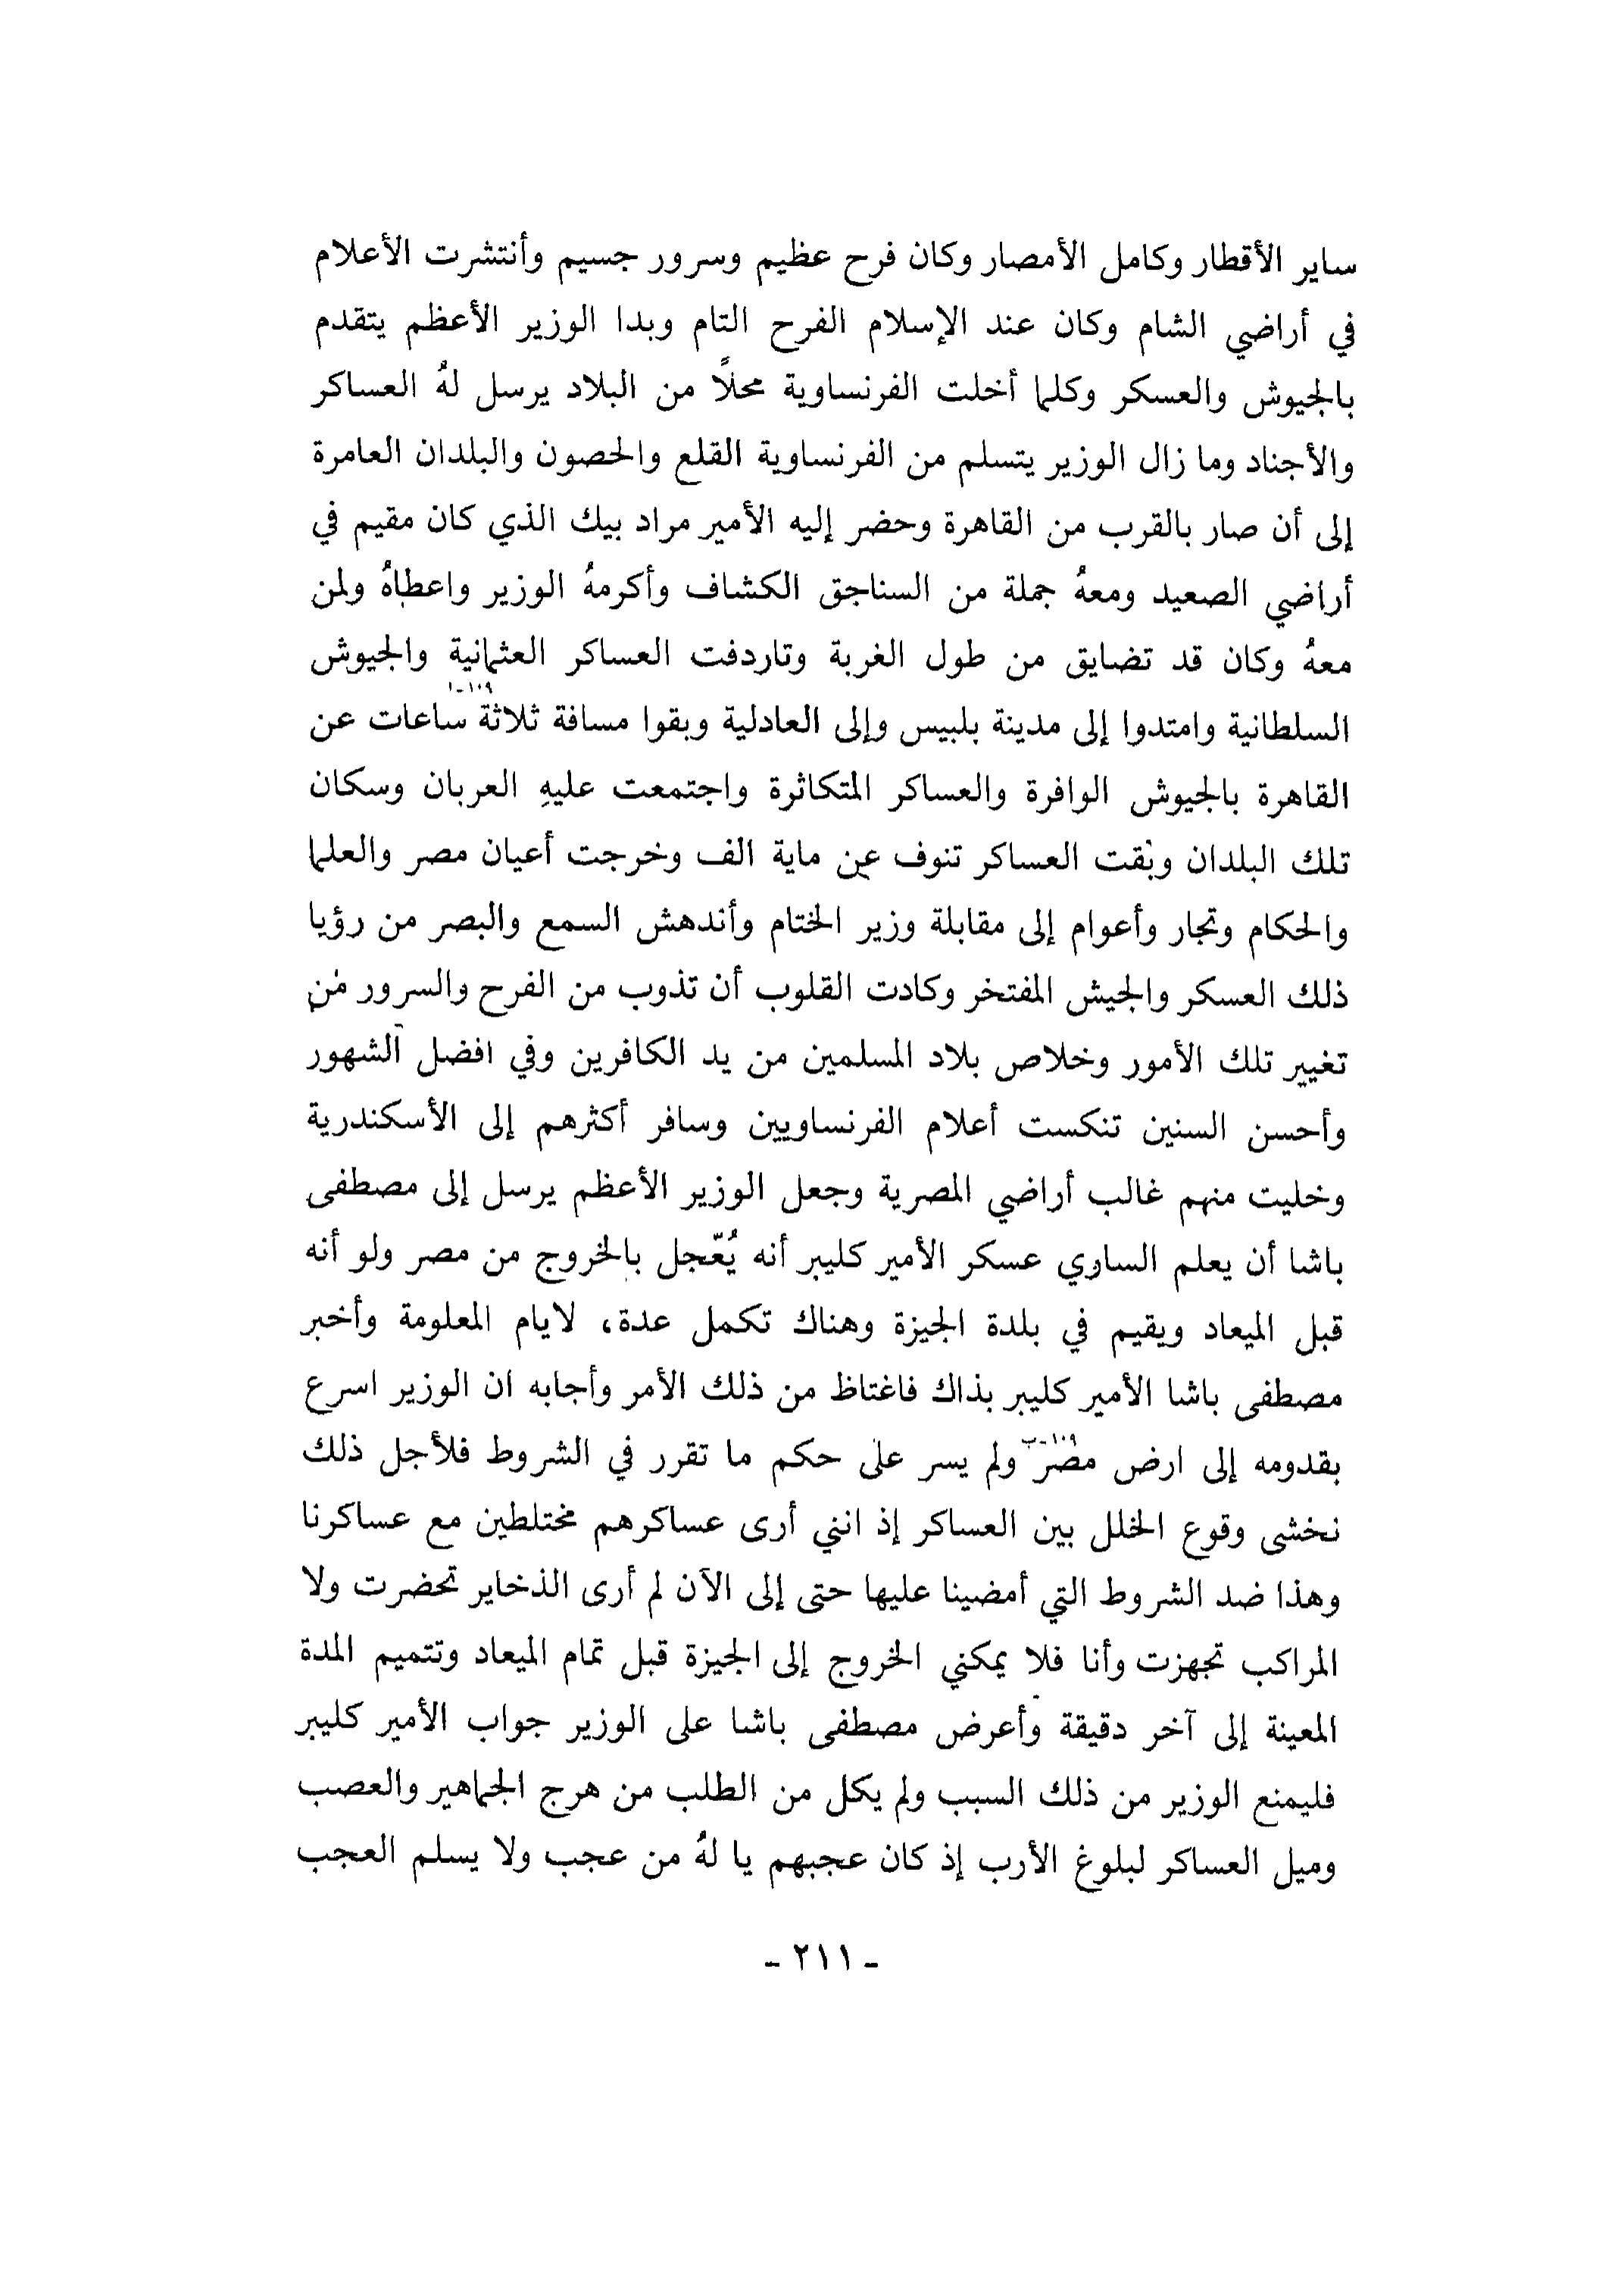 ساير الأقطار وكامل الأمصار وكان فرح عظيم وسرور جسيم وأنتشرت الأعلام
في أراضي الشام وكان عند الإسلام الفرح التام وبدا الوزير الأعظم يتقدم
بالجيوش والعسكر وكلما أخلت الفرنساوية محلاً من البلاد يرسل لهُ العساكر
والأجناد وما زال الوزير يتسلم من الفرنساوية القلع والحصون والبلدان العامرة
إلى أن صار بالقرب من القاهرة وحضر إليه الأمير مراد بيك الذي كان مقيم في
أراضي الصعيد ومعهُ جملة من السناجق الكشاف وأكرمهُ الوزير واعطاهُ ولمن
معهُ وكان قد تضايق من طول الغربة وتاردفت العساكر العثمانية والجيوش
السلطانية وامتدوا إلى مدينة بلبيس وإلى العادلية وبقوا مسافة ثلاثة ١٠٩-١ ساعات عن
القاهرة بالجيوش الوافرة والعساكر المتكاثرة واجتمعت عليهِ العربان وسكان
تلك البلدان وبقت العساكر تنوف عن ماية الف وخرجت أعيان مصر والعلما
والحكام وتجار وأعوام إلى مقابلة وزير الختام وأندهش السمع والبصر من رؤيا
ذلك العسكر والجيش المفتخر وكادت القلوب أن تذوب من الفرح والسرور من
تغيير تلك الأمور وخلاص بلاد المسلمين من يد الكافرين وفي افضل الشهور
وأحسن السنين تنكست أعلام الفرنساويين وسافر أكثرهم إلى الأسكندرية
وخليت منهم غالب أراضي المصرية وجعل الوزير الأعظم يرسل إلى مصطفى
باشا أن يعلم الساري عسكر الأمير كليبر أنه يُعّجل بالخروج من مصر ولو أنه
قبل الميعاد ويقيم في بلدة الجيزة وهناك تكمل عدة، لايام المعلومة وأخبر
مصطفى باشا الأمير كليبر بذاك فاغتاظ من ذلك الأمر وأجابه ان الوزير اسرع
بقدومه إلى ارض مصر ١٠٩-ب ولم يسر على حكم ما تقرر في الشروط فلأجل ذلك
نخشى وقوع الخلل بين العساكر إذ انني أرى عساكرهم مختلطين مع عساكرنا
وهذا ضد الشروط التي أمضينا عليها حتى إلى الآن لم أرى الذخاير تحضرت ولا
المراكب تجهزت وأنا فلا يمكني الخروج إلى الجيزة قبل تمام الميعاد وتتميم المدة
المعينة إلى آخر دقيقة وأعرض مصطفى باشا على الوزير جواب الأمير كليبر
فليمنع الوزير من ذلك السبب ولم يكل من الطلب من هرج الجماهير والعصب
وميل العساكر لبلوغ الأرب إذ كان عجبهم يا لهُ من عجب ولا يسلم العجب
- ٢١١ -